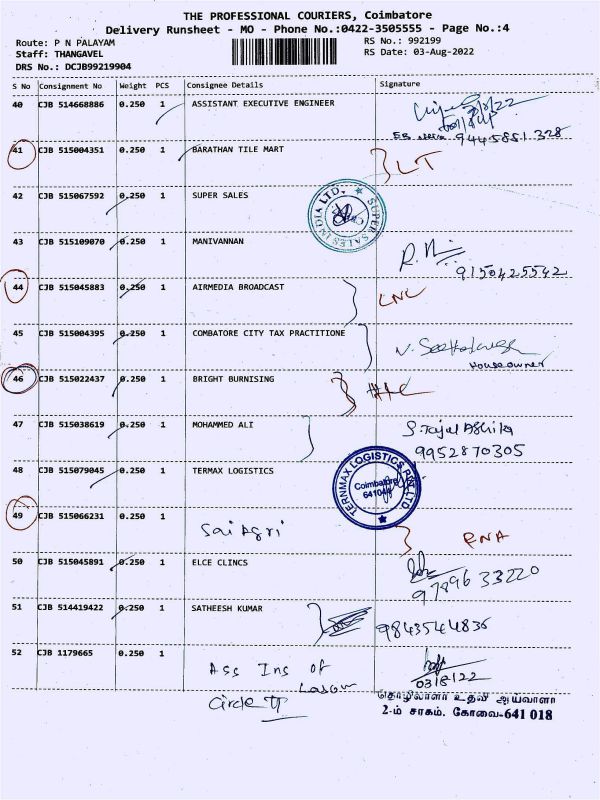 THE PROFESSIONAL COURIERS, Coimbatore
Delivery Runsheet - MO - Phone No.:0422-3505555 - Page No.:4
Route: P N PALAYAM
RS No.: 992199
Staff: THANGAVEL
RS Date: 03-Aug-2022
DRS No.: DCJB99219904
S No Consignment No Weight PCS Consignee Details Signature
40 CJB 514668886 0.250 1 ASSISTANT EXECUTIVE ENGINEER
9445851328
41 CJB 515004351 0.250 1 BARATHAN TILE MART LT
42 CJB 515067592 0.250 1 SUPER SALES
SUPER SALES INDIA LTD.
43 CJB 515109070 0.250 1 MANIVANNAN
9150425542
44 CJB 515045883 0.250 1 AIRMEDIA BROADCAST LNC
45 CJB 515004395 0.250 1 COMBATORE CITY TAX PRACTITIONE
House owner
46 CJB 515022437 0.250 1 BRIGHT BURNISING
47 CJB 515038619 0.250 1 MOHAMMED ALI
9952870305
48 CJB 515079045 0.250 1 TERMAX LOGISTICS
TERNMAX LOGISTICS PVT LTD
Coimbatore
641048
49 CJB 515066231 0.250 1
Sai Agri RNA
50 CJB 515045891 0.250 1 ELCE CLINCS
9789633220
51 CJB 514419422 0.250 1 SATHEESH KUMAR
9843544836
52 CJB 1179665 0.250 1
Ass Ins of
Circle II
03/8/22
தொழிலாளர் உதவி ஆய்வாளர்
2-ம் சரகம். கோவை-641 018